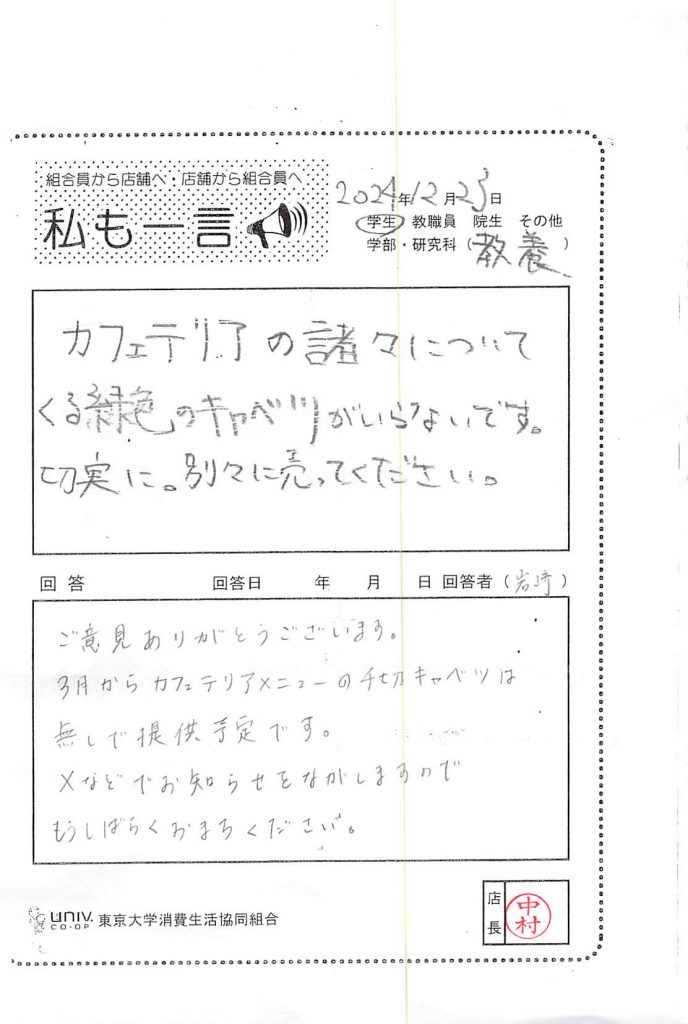 組合員から店舗へ・店舗から組合員へ
私も一言
2024年12月23日
学生 教職員 院生 その他
学部・研究科（教養）
カフェテリアの諸々について
くる緑色のキャベツがいらないです。
切実に。別々に売ってください。
回答 回答日 年 月 日 回答者（岩崎）
ご意見ありがとうございます。
3月からカフェテリアメニューの千切キャベツは
無しで提供予定です。
Xなどでお知らせをながしますので
もうしばらくおまちください。
univ. CO-OP 東京大学消費生活協同組合
店長 中村